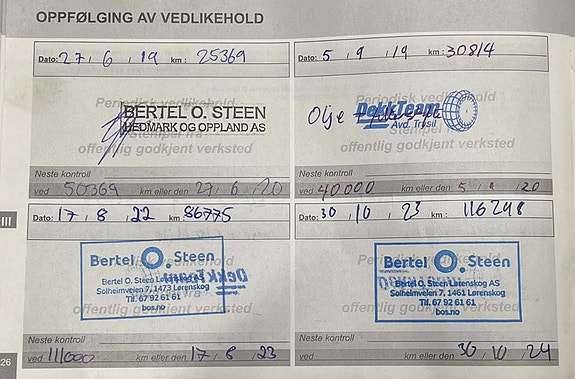 OPPFØLGING AV VEDLIKEHOLD
Dato: 27, 6, 19 km: 25369
Periodisk vedlikehold
BERTEL O. STEEN
HEDMARK OG OPPLAND AS
Stempel fra
offentlig godkjent verksted
Neste kontroll
ved 50369 km eller den 27, 6, 20
Dato: 5, 9, 19 km: 30814
Periodisk vedlikehold
DekkTeam
Olje +
Avd. Trysil
Stempel fra
offentlig godkjent verksted
Neste kontroll
ved 40000 km eller den 5, 20
III
Dato: 17, 8, 22 km: 86775
Bertel O. Steen
Bertel O. Steen Lørenskog
Solheimveien 7, 1473 Lørenskog
Tlf. 67 92 61 61
bos.no
DekkTeam
offentlig godkjent verksted
Neste kontroll
ved 111000 km eller den 17, 8, 23
Dato: 30, 10, 23 km: 116298
Bertel O. Steen
Bertel O. Steen Lørenskog AS
Solheimveien 7, 1461 Lørenskog
Tlf. 67 92 61 61
bos.no
offentlig godkjent verksted
Neste kontroll
ved km eller den 30, 10, 24
26